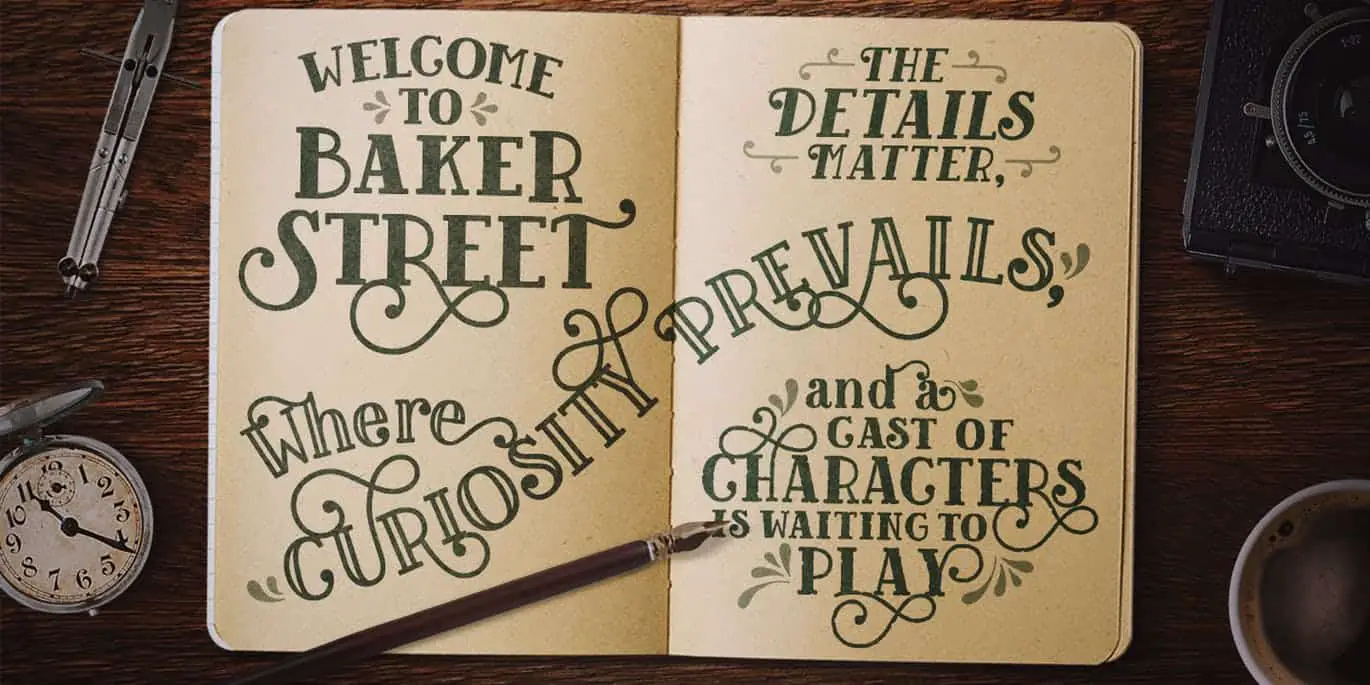 WELCOME
TO
BAKER
STREET
Where
CURIOSITY PREVAILS,
THE
DETAILS
MATTER,
and a
CAST OF
CHARACTERS
IS WAITING TO
PLAY